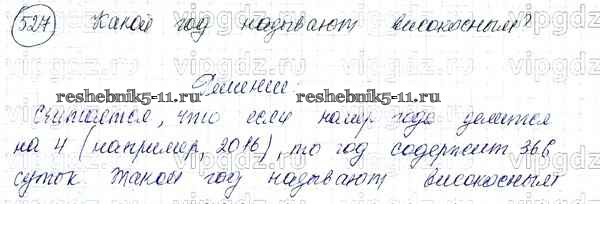 527 Какой год называют високосным?
Решение:
reshebnik5-11.ru reshebnik5-11.ru
Считается, что если номер года делится
на 4 (например, 2016), то год содержит 366
суток. Такой год называют високосным